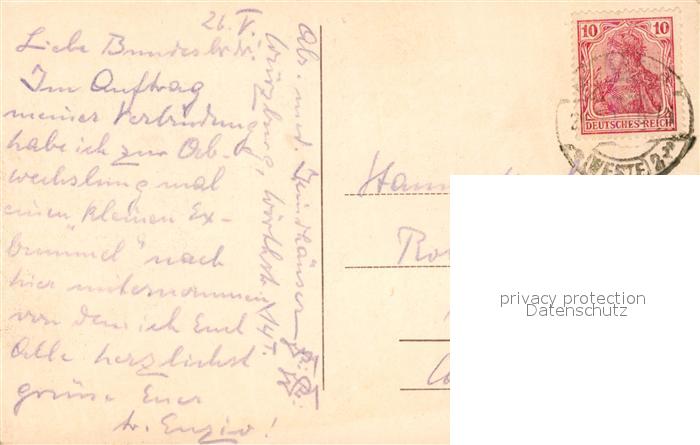 26.V.
Liebe Bundesbrdr.!
Im Auftrag
meiner Verbindung
habe ich zur Ab-
wechslung mal
einen "kleinen Ex-
brummel" nach
hier unternommen
von dem ich Euch
Alle herzlichst
grüsse Euer
tr. Enzio!
Abs. med.
Würzburg, Wörthstr. 14I.
10 10
DEUTSCHES REICH
(WESTF) 2
privacy protection
Datenschutz